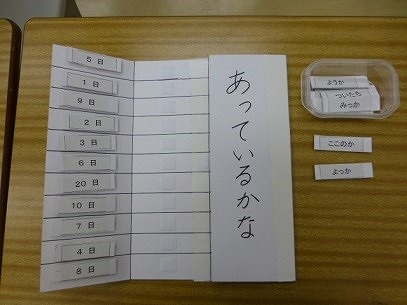 5 日
1 日
9 日
2 日
3 日
6 日
20 日
10 日
7 日
4 日
8 日
あっているかな
ようか
ついたち
みっか
ここのか
よっか